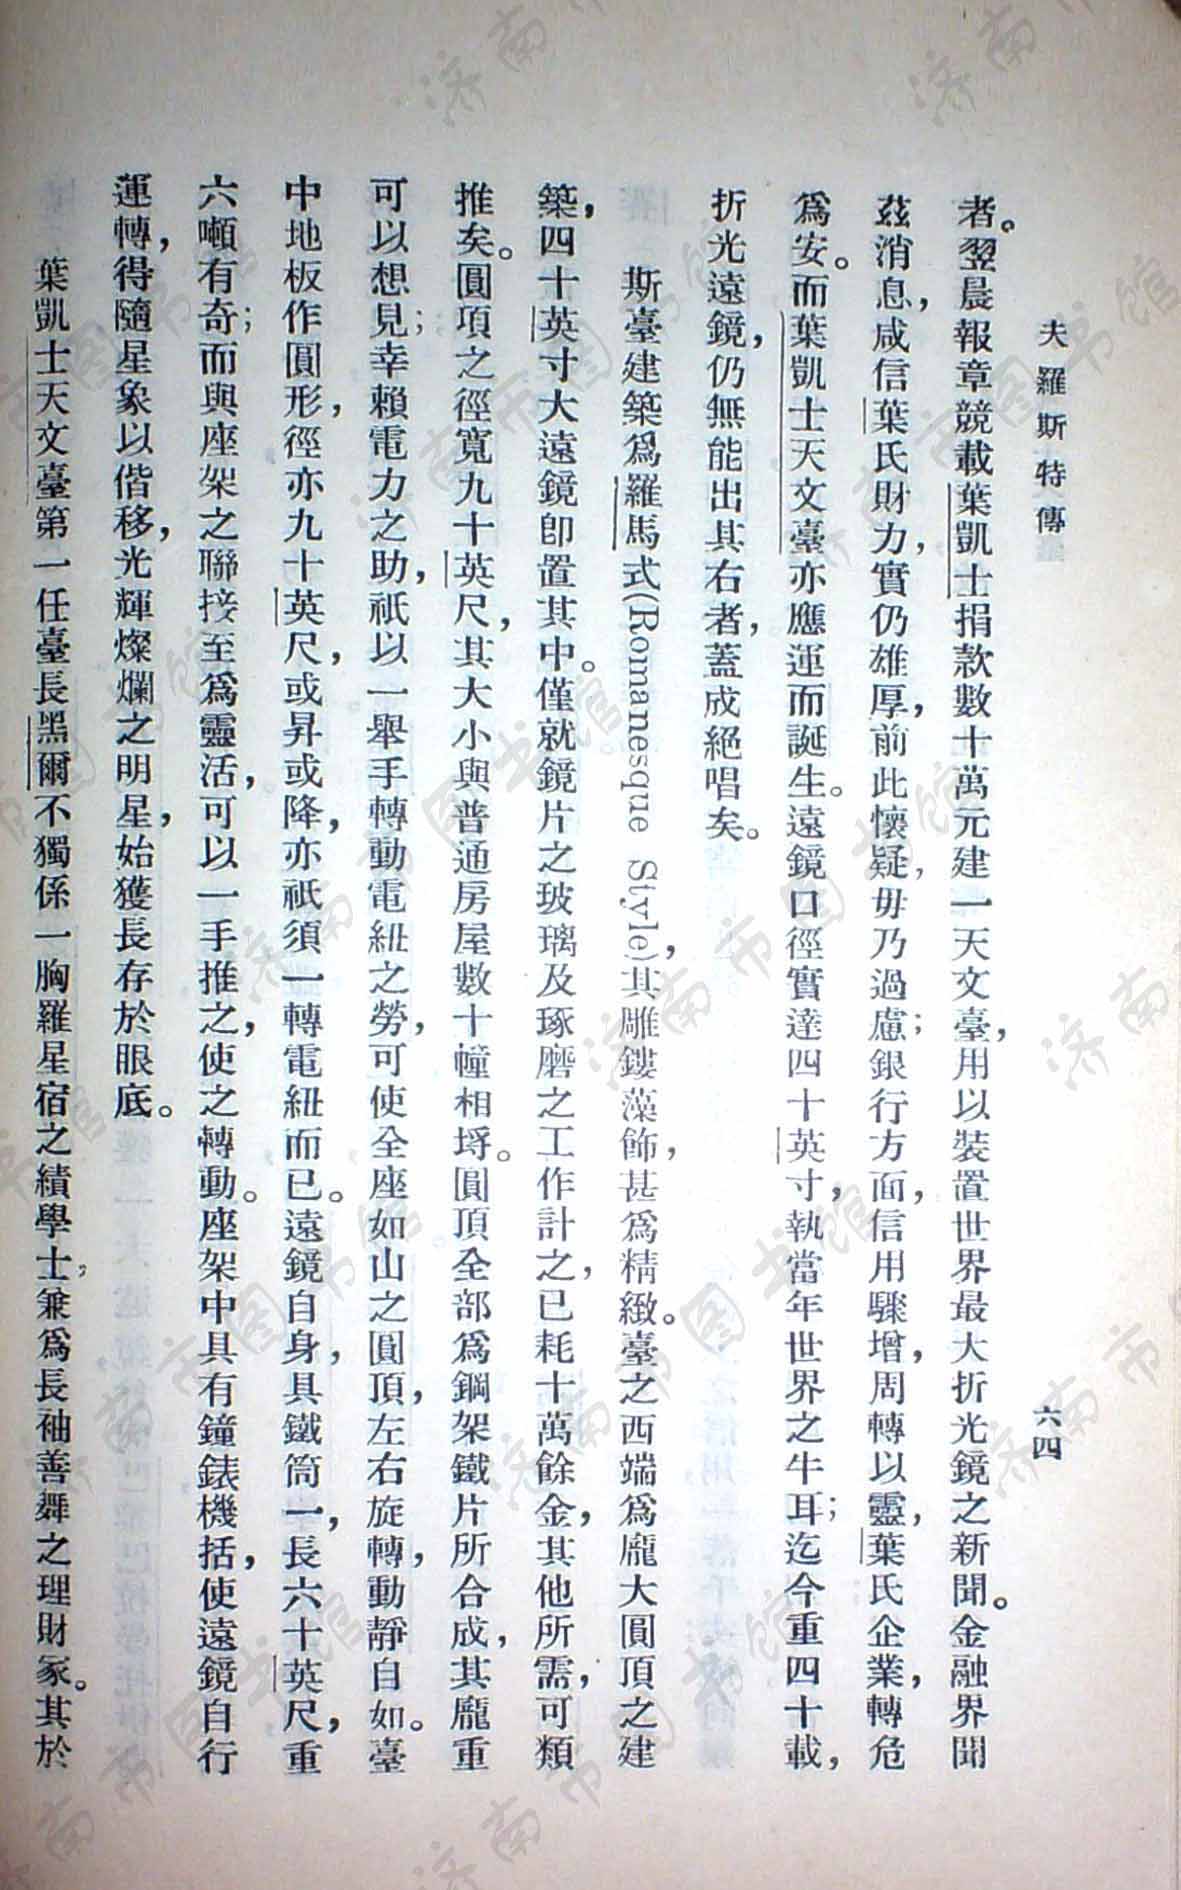 夫羅斯特傳
六四
者。翌晨報章競載葉凱士捐款數十萬元建一天文臺，用以裝置世界最大折光鏡之新聞。金融界聞
茲消息，咸信葉氏財力，實仍雄厚，前此懷疑，毋乃過慮；銀行方面，信用驟增，周轉以靈，葉氏企業，轉危
爲安。而葉凱士天文臺亦應運而誕生。遠鏡口徑實達四十英寸，執當年世界之牛耳；迄今重四十載，
折光遠鏡，仍無能出其右者，蓋成絕唱矣。
斯臺建築爲羅馬式(Romanesque Style)，其雕鏤藻飾，甚爲精緻。臺之西端爲龐大圓頂之建
築，四十英寸大遠鏡卽置其中。僅就鏡片之玻璃及琢磨之工作計之，已耗十萬餘金，其他所需，可類
推矣。圓項之徑寬九十英尺，其大小與普通房屋數十幢相埒。圓頂全部爲鋼架鐵片所合成，其龐重
可以想見；幸賴電力之助，祇以一舉手轉動電紐之勞，可使全座如山之圓頂，左右旋轉，動靜自如。臺
中地板作圓形，徑亦九十英尺，或昇或降，亦祇須一轉電紐而已。遠鏡自身，具鐵筒一，長六十英尺，重
六噸有奇；而與座架之聯接至爲靈活，可以一手推之，使之轉動。座架中具有鐘錶機括，使遠鏡自行
運轉，得隨星象以偕移，光輝燦爛之明星，始獲長存於眼底。
葉凱士天文臺第一任臺長黑爾不獨係一胸羅星宿之績學士，兼爲長袖善舞之理財家。其於
济南市图书馆